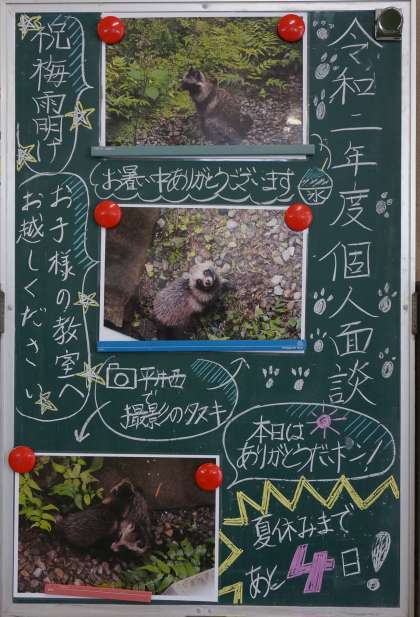 令和二年度個人面談
祝梅雨明け
お子様の教室へ
お越しください
お暑い中ありがとうございます
氷
平井西
で
撮影のタヌキ
本日は
ありがとうだポン!
夏休みまで
あと4日!